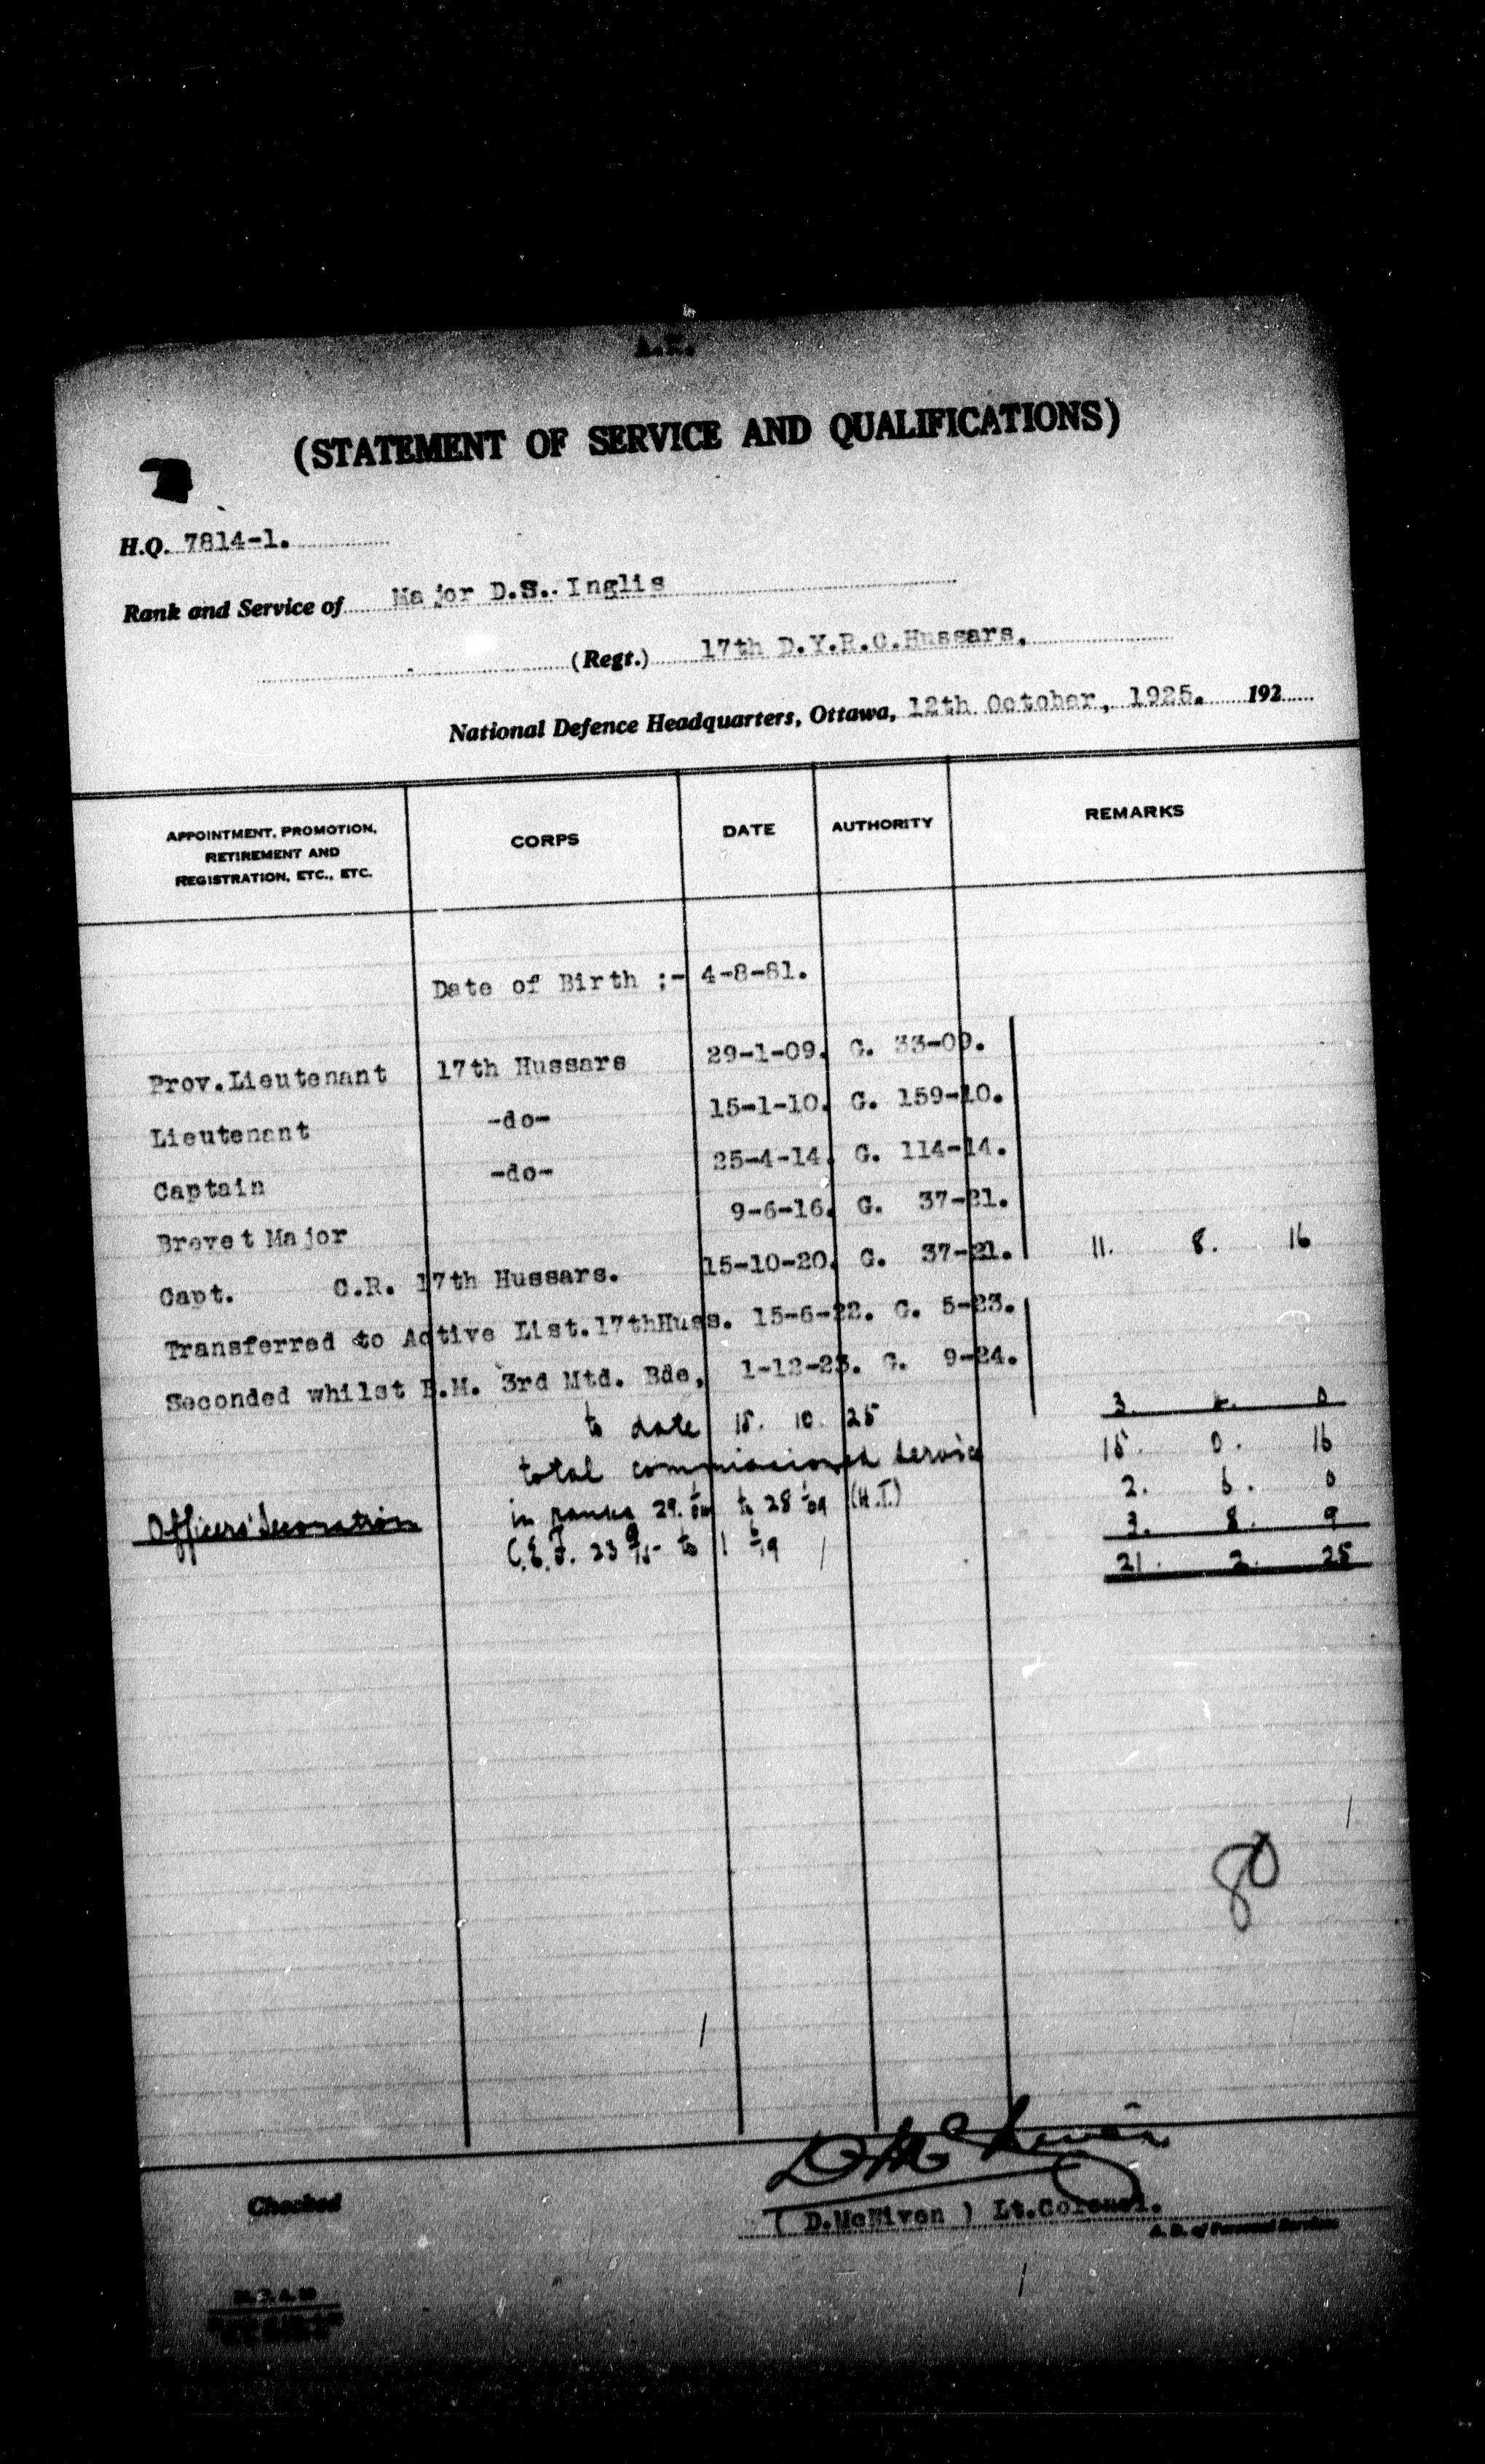 (STATEMENT OF SERVICE AND QUALIFICATIONS)
H.Q. 7814-1.
Rank and Service of Major D.S. Inglis
(Regt.) 17th D.Y.R.C.Hussars.
National Defence Headquarters, Ottawa, 12th October, 1925. 192
APPOINTMENT, PROMOTION, RETIREMENT AND REGISTRATION, ETC., ETC. CORPS DATE AUTHORITY REMARKS
Date of Birth :- 4-8-81.
Prov.Lieutenant 17th Hussars 29-1-09. G. 33-09.
Lieutenant -do- 15-1-10. G. 159-10.
Captain -do- 25-4-14. G. 114-14.
Brevet Major 9-6-16. G. 37-21.
Capt. C.R. 17th Hussars. 15-10-20. G. 37-21. 11. 8. 16
Transferred to Active List.17thHuss. 15-6-22. G. 5-23.
Seconded whilst B.M. 3rd Mtd. Bde, 1-12-23. G. 9-24.
to date 15. 10. 25 3. 4. 0
total commissioned service 15. 0. 16
in ranks 29. to 28 1/09 (H.T.) 2. 6. 0
Officers' Decoration C.E.F. 23 9/15 to 1 6/19 3. 8. 9
21. 2. 25
80
Checked
(D.McNiven) Lt.Colonel.
A. D. of Personal Services